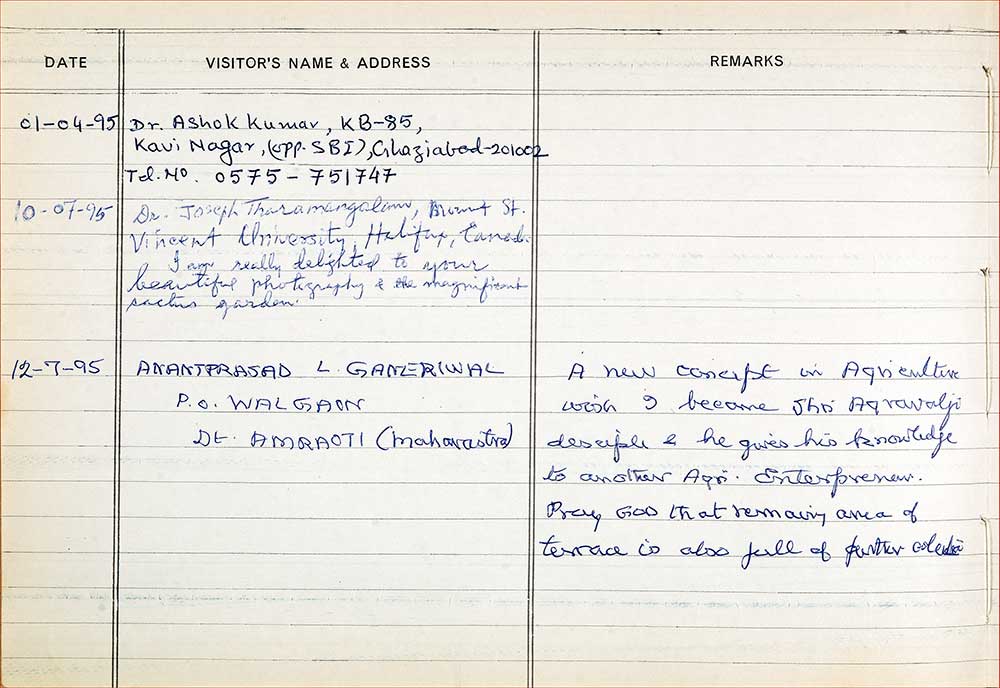 DATE
VISITOR'S NAME & ADDRESS
REMARKS
01-04-95
Dr. Ashok Kumar, KB-85,
Kavi Nagar, (opp. SBI), Ghaziabad-201002
Tel. No. 0575-751747
10-07-95
Dr. Joseph Tharamangalam, Mount St.
Vincent University, Halifax, Canad.
I am really delighted to your
beautiful photography & the magnificent
cactus garden.
12-7-95
ANANTPRASAD L. GANERIWAL
P.O. WALGAON
Dt. AMRAOTI (Maharastra)
A new concept in Agriculture
wish I became Shri Agravalji
desciple & he gives his knowledge
to another Agri. Enterprener.
Pray GOD that remaing area of
terrace is also full of further